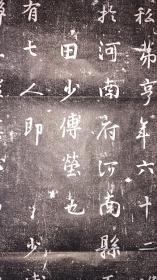 私第亨年六十二
於河南府河南縣
田少傅塋也
有七人即
少